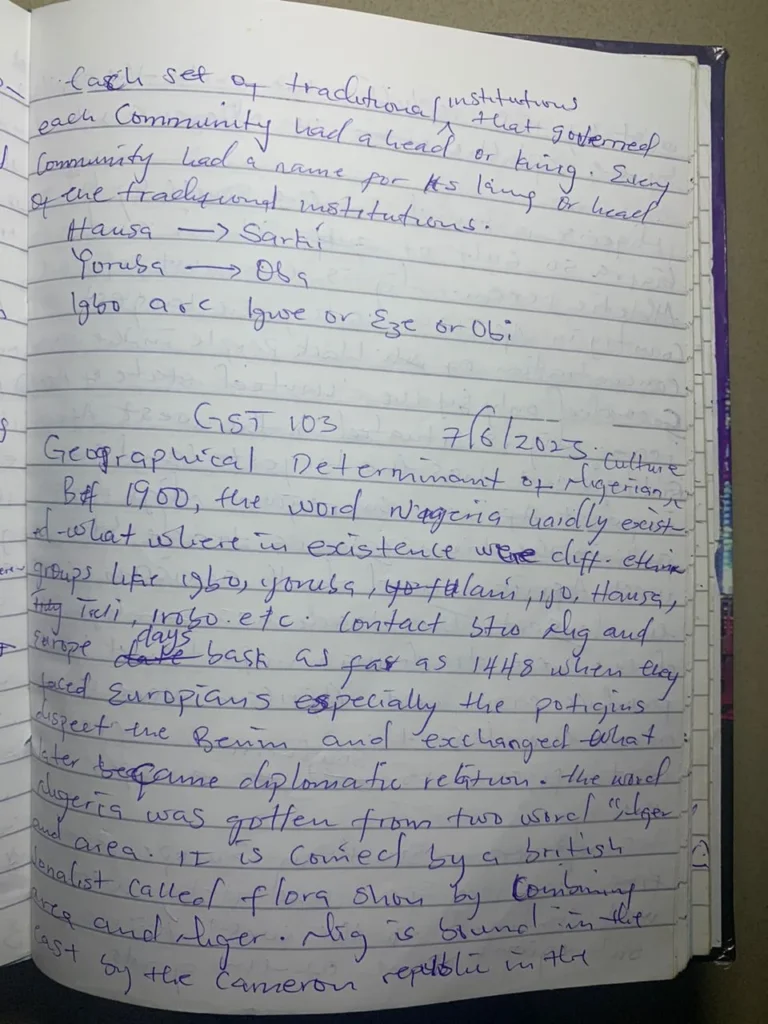 Each set of traditional institutions that governed
each Community had a head or king. Every
Community had a name for its king or head
of the traditional institutions.
Hausa → Sarki
Yoruba → Oba
Igbo are Igwe or Eze or Obi
GST 103 7/6/2023
Geographical Determinant of Nigerian Culture
Bf 1960, the word Nigeria hardly exist
ed what where in existence were diff. ethnic
groups like Igbo, Yoruba, fulani, ijo, Hausa,
Tiv, Irobo. etc. Contact btw Nig and
Europe days bask as far as 1448 when they
faced Europians especially the potigins
the Benin and exchanged what
later became diplomatic relation. the word
Nigeria was gotten from two word "Niger
and area. It is coined by a british
called flora Show by Combining
area and Niger. Nig is bound in the
east by the Cameron republic in the